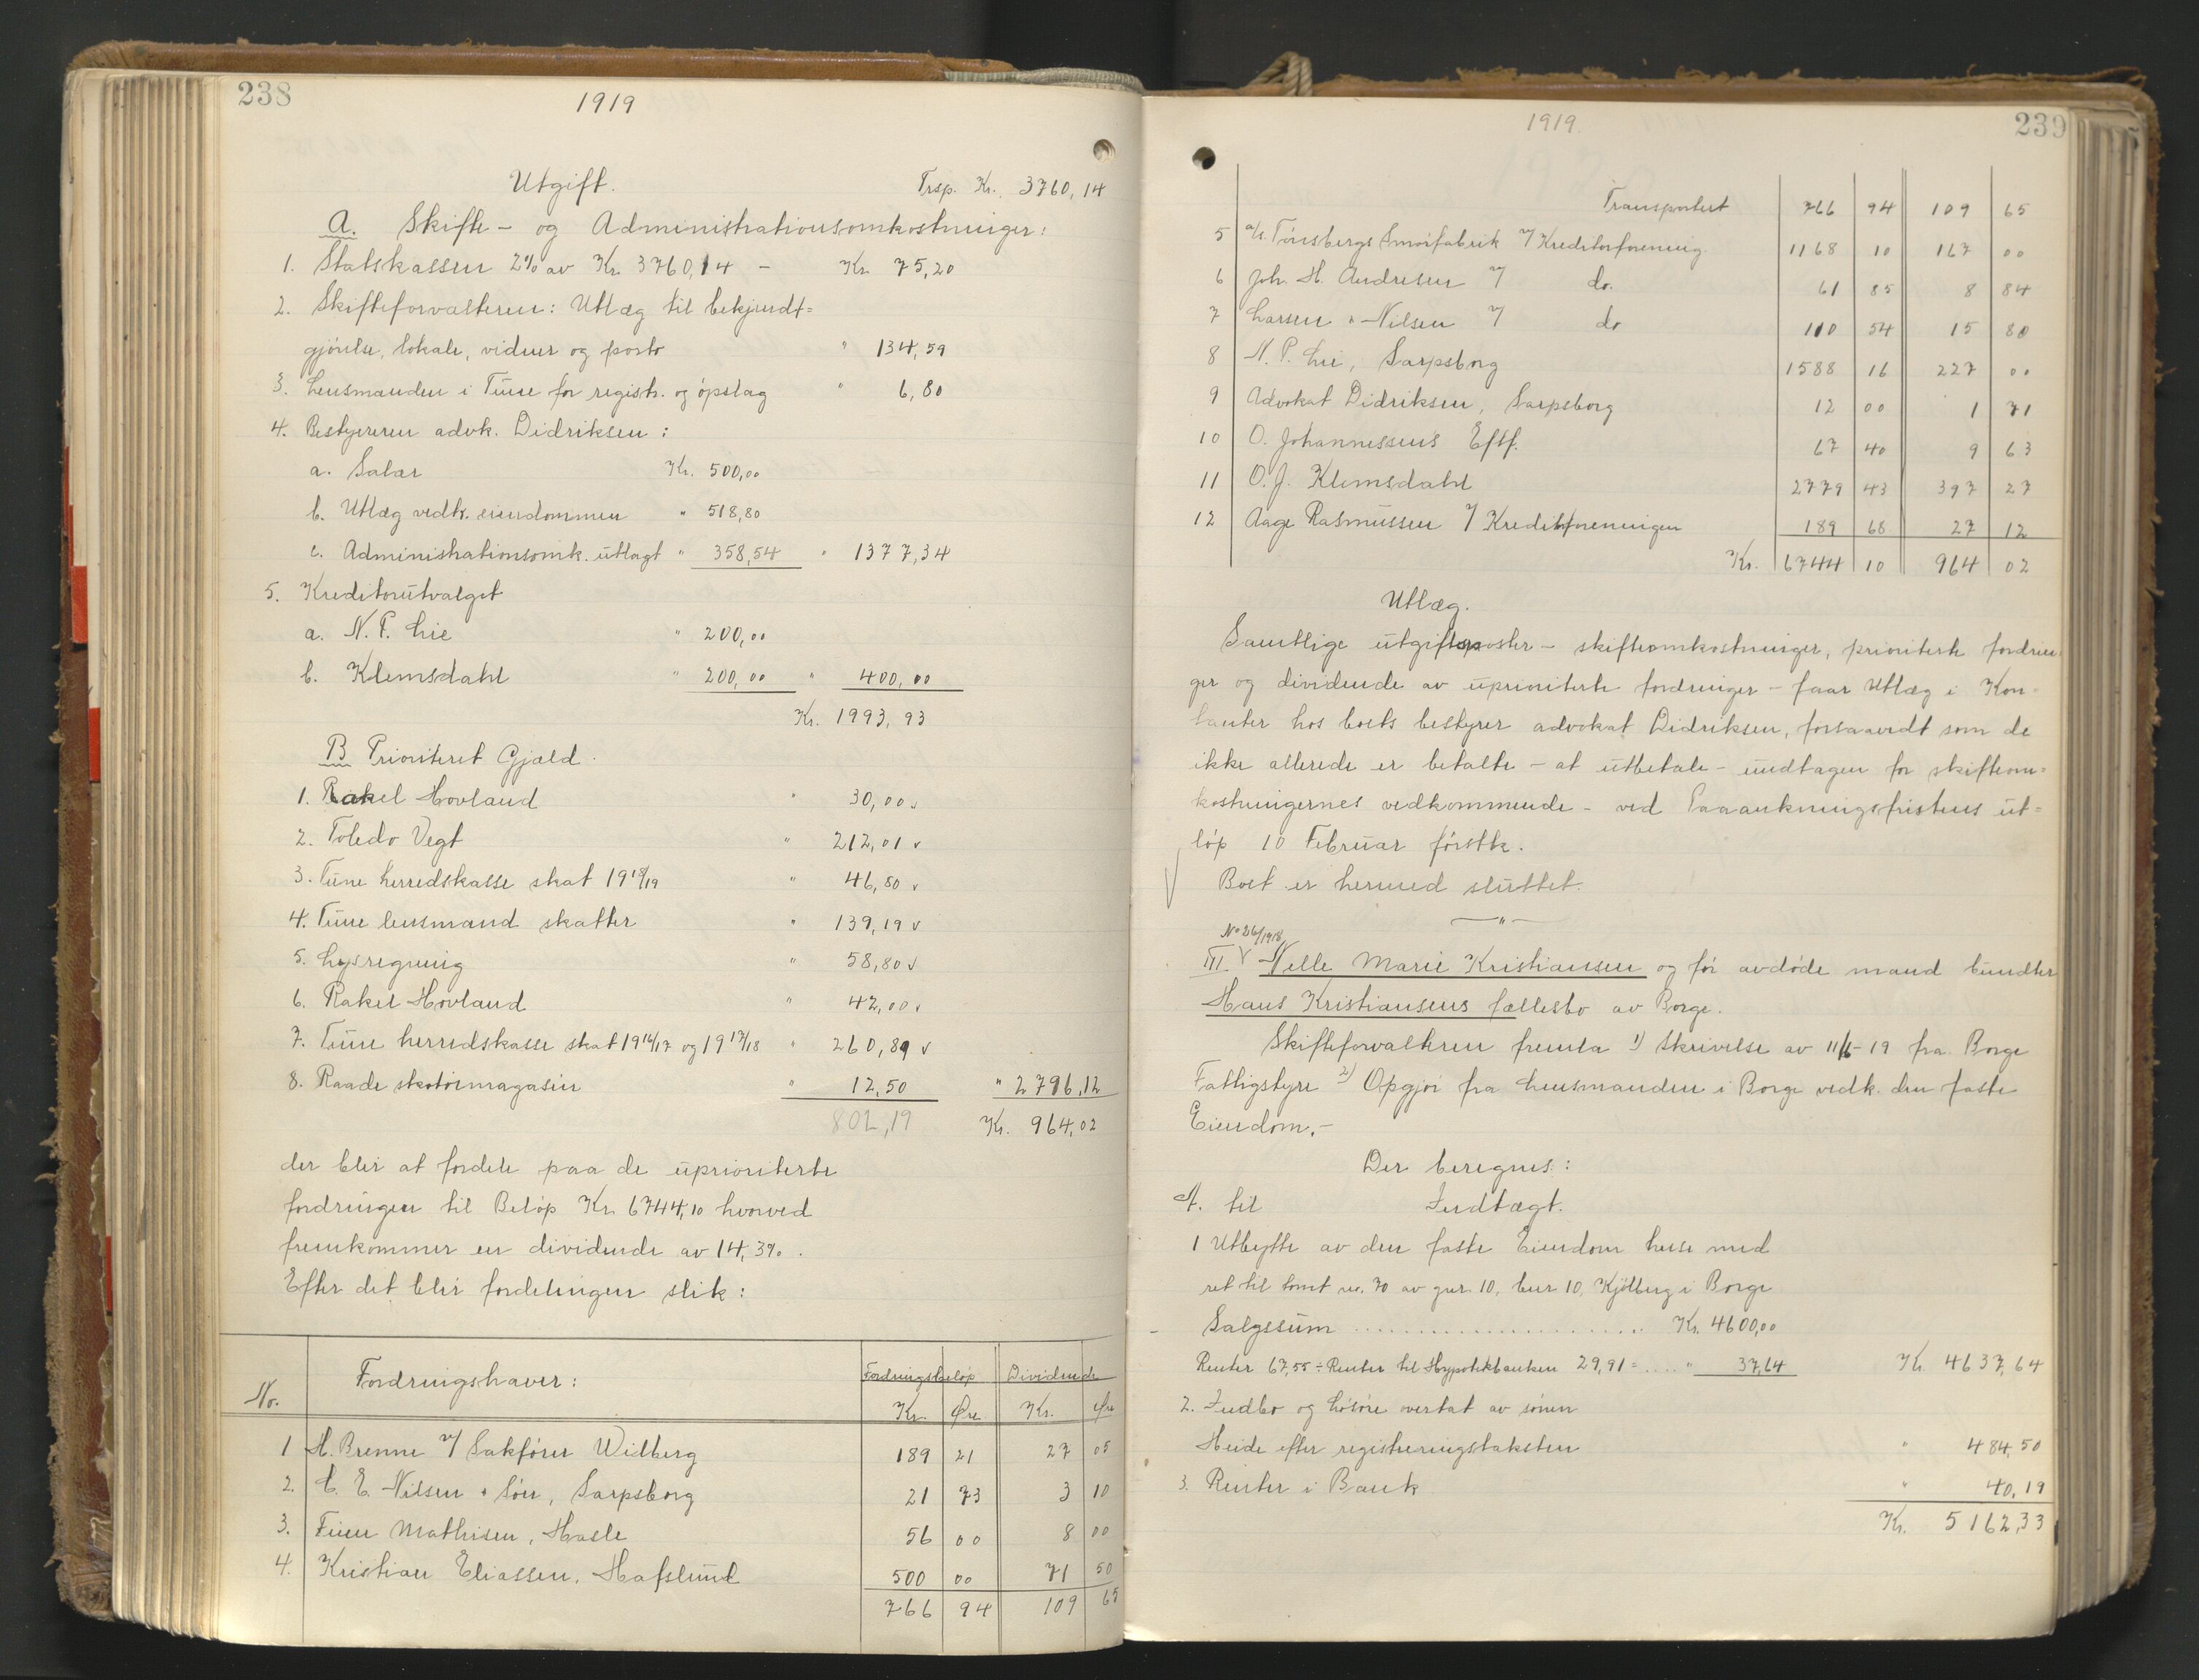 238
1919
Utgift.
Trsp. Kr. 3760,14
A. Skifte- og Administrationsomkostninger:
1. Statskassen 2% av Kr. 3760,14 - Kr. 75,20
2. Skifteforvalteren: Utlæg til bekjendt=
gjörelse, lokale, vidner og porto " 134,59
3. Lensmanden i Tune for registr. og opslag " 6,80
4. Bestyreren advk. Didriksen:
a. Salær Kr. 500,00
b. Utlæg vedk. eiendommen " 518,80
c. Administrationsomk. utlagt " 358,54 " 1377,34
5. Kreditorutvalget
a. N. P. Lie " 200,00
b. Klemsdahl " 200,00 " 400,00
Kr. 1993,93
B Prioritert Gjæld.
1. Rakel Hovland " 30,00
2. Toledo Vegt " 212,01
3. Tune herredskasse skat 1918/19 " 46,80
4. Tune lensmand skatter " 139,19
5. Lysregning " 58,80
6. Rakel Hovland " 42,00
7. Tune herredskasse skat 1916/17 og 1917/18 " 260,89
8. Raade skotöimagasin " 12,50 " 2796,12
802,19 Kr. 964,02
der blir at fordele paa de uprioriterte
fordringer til Belöp Kr. 6744,10 hvorved
fremkommer en dividende av 14,3%.
Efter det blir fordelingen slik:
No. Fordringshaver: Fordringsbelöp Dividende
Kr. Øre Kr. Øre
1 H. Brenne v/ Sakförer Widberg 189 21 27 05
2. C. E. Nilsen & Sön, Sarpsborg 21 73 3 10
3. Finn Mathisen, Hasle 56 00 8 00
4. Kristian Eliassen, Hafslund 500 00 71 50
766 94 109 65
1919.
239
Transportert 766 94 109 65
5 a/s. Tönsbergs Smörfabrik v/ Kreditorforening 1168 10 167 00
6 Joh. H. Andresen v/ do. 61 85 8 84
7 Larsen & Nilsen v/ do 110 54 15 80
8 N. P. Lie, Sarpsborg 1588 16 227 00
9 Advokat Didriksen, Sarpsborg 12 00 1 71
10 O. Johannessens Eftf. 67 40 9 63
11 O. J. Klemsdahl 2779 43 397 27
12 Aage Rasmussen v/ Kreditorforeningen 189 68 27 12
Kr. 6744 10 964 02
Utlæg.
Samtlige utgiftsposter - skifteomkostninger, prioriterte fordrin
ger og dividende av uprioriterte fordringer - faar Utlæg i Kon-
tanter hos boets bestyrer advokat Didriksen, forsaavidt som de
ikke allerede er betalte - at utbetale - undtagen for skifteom=
kostningernes vedkommende - ved Paaankningsfristens ut=
löp 10 Februar förstk.
Boet er hermed sluttet.
No 26/1918
III. Nelle Marie Kristiansen og för avdöde mand
Hans Kristiansens fællesbo av Borge.
Skifteforvalteren fremla 1) Skrivelse av 11/6-19 fra Borge
Fattigstyre 2) Opgjör fra Lensmanden i Borge vedk. den faste
Eiendom.-
Der beregnes:
A. til Indtægt.
1 Utbytte av den faste Eiendom huse med
ret til tomt nr. 70 av gnr. 10, bnr 10, Kjölberg i Borge
Salgssum ........ Kr. 4600,00
Renter 67,55 ÷ Renter til Hypotekbanken 29,91 = .... " 37,64 Kr. 4637,64
2. Indbo og lösöre overtat av sönen
efter registreringstaksten " 484,50
3. Renter i Bank " 40,19
Kr. 5162,33